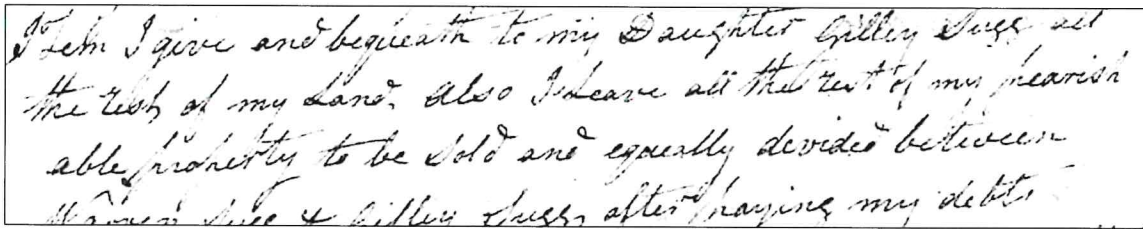 Item I give and bequeath to my Daughter Gilley Sugg all
the rest of my Land, also I Leave all the rest of my pearish
able property to be Sold and equeally devided between
Warren Sugg & Gilley Sugg, after paying my debts